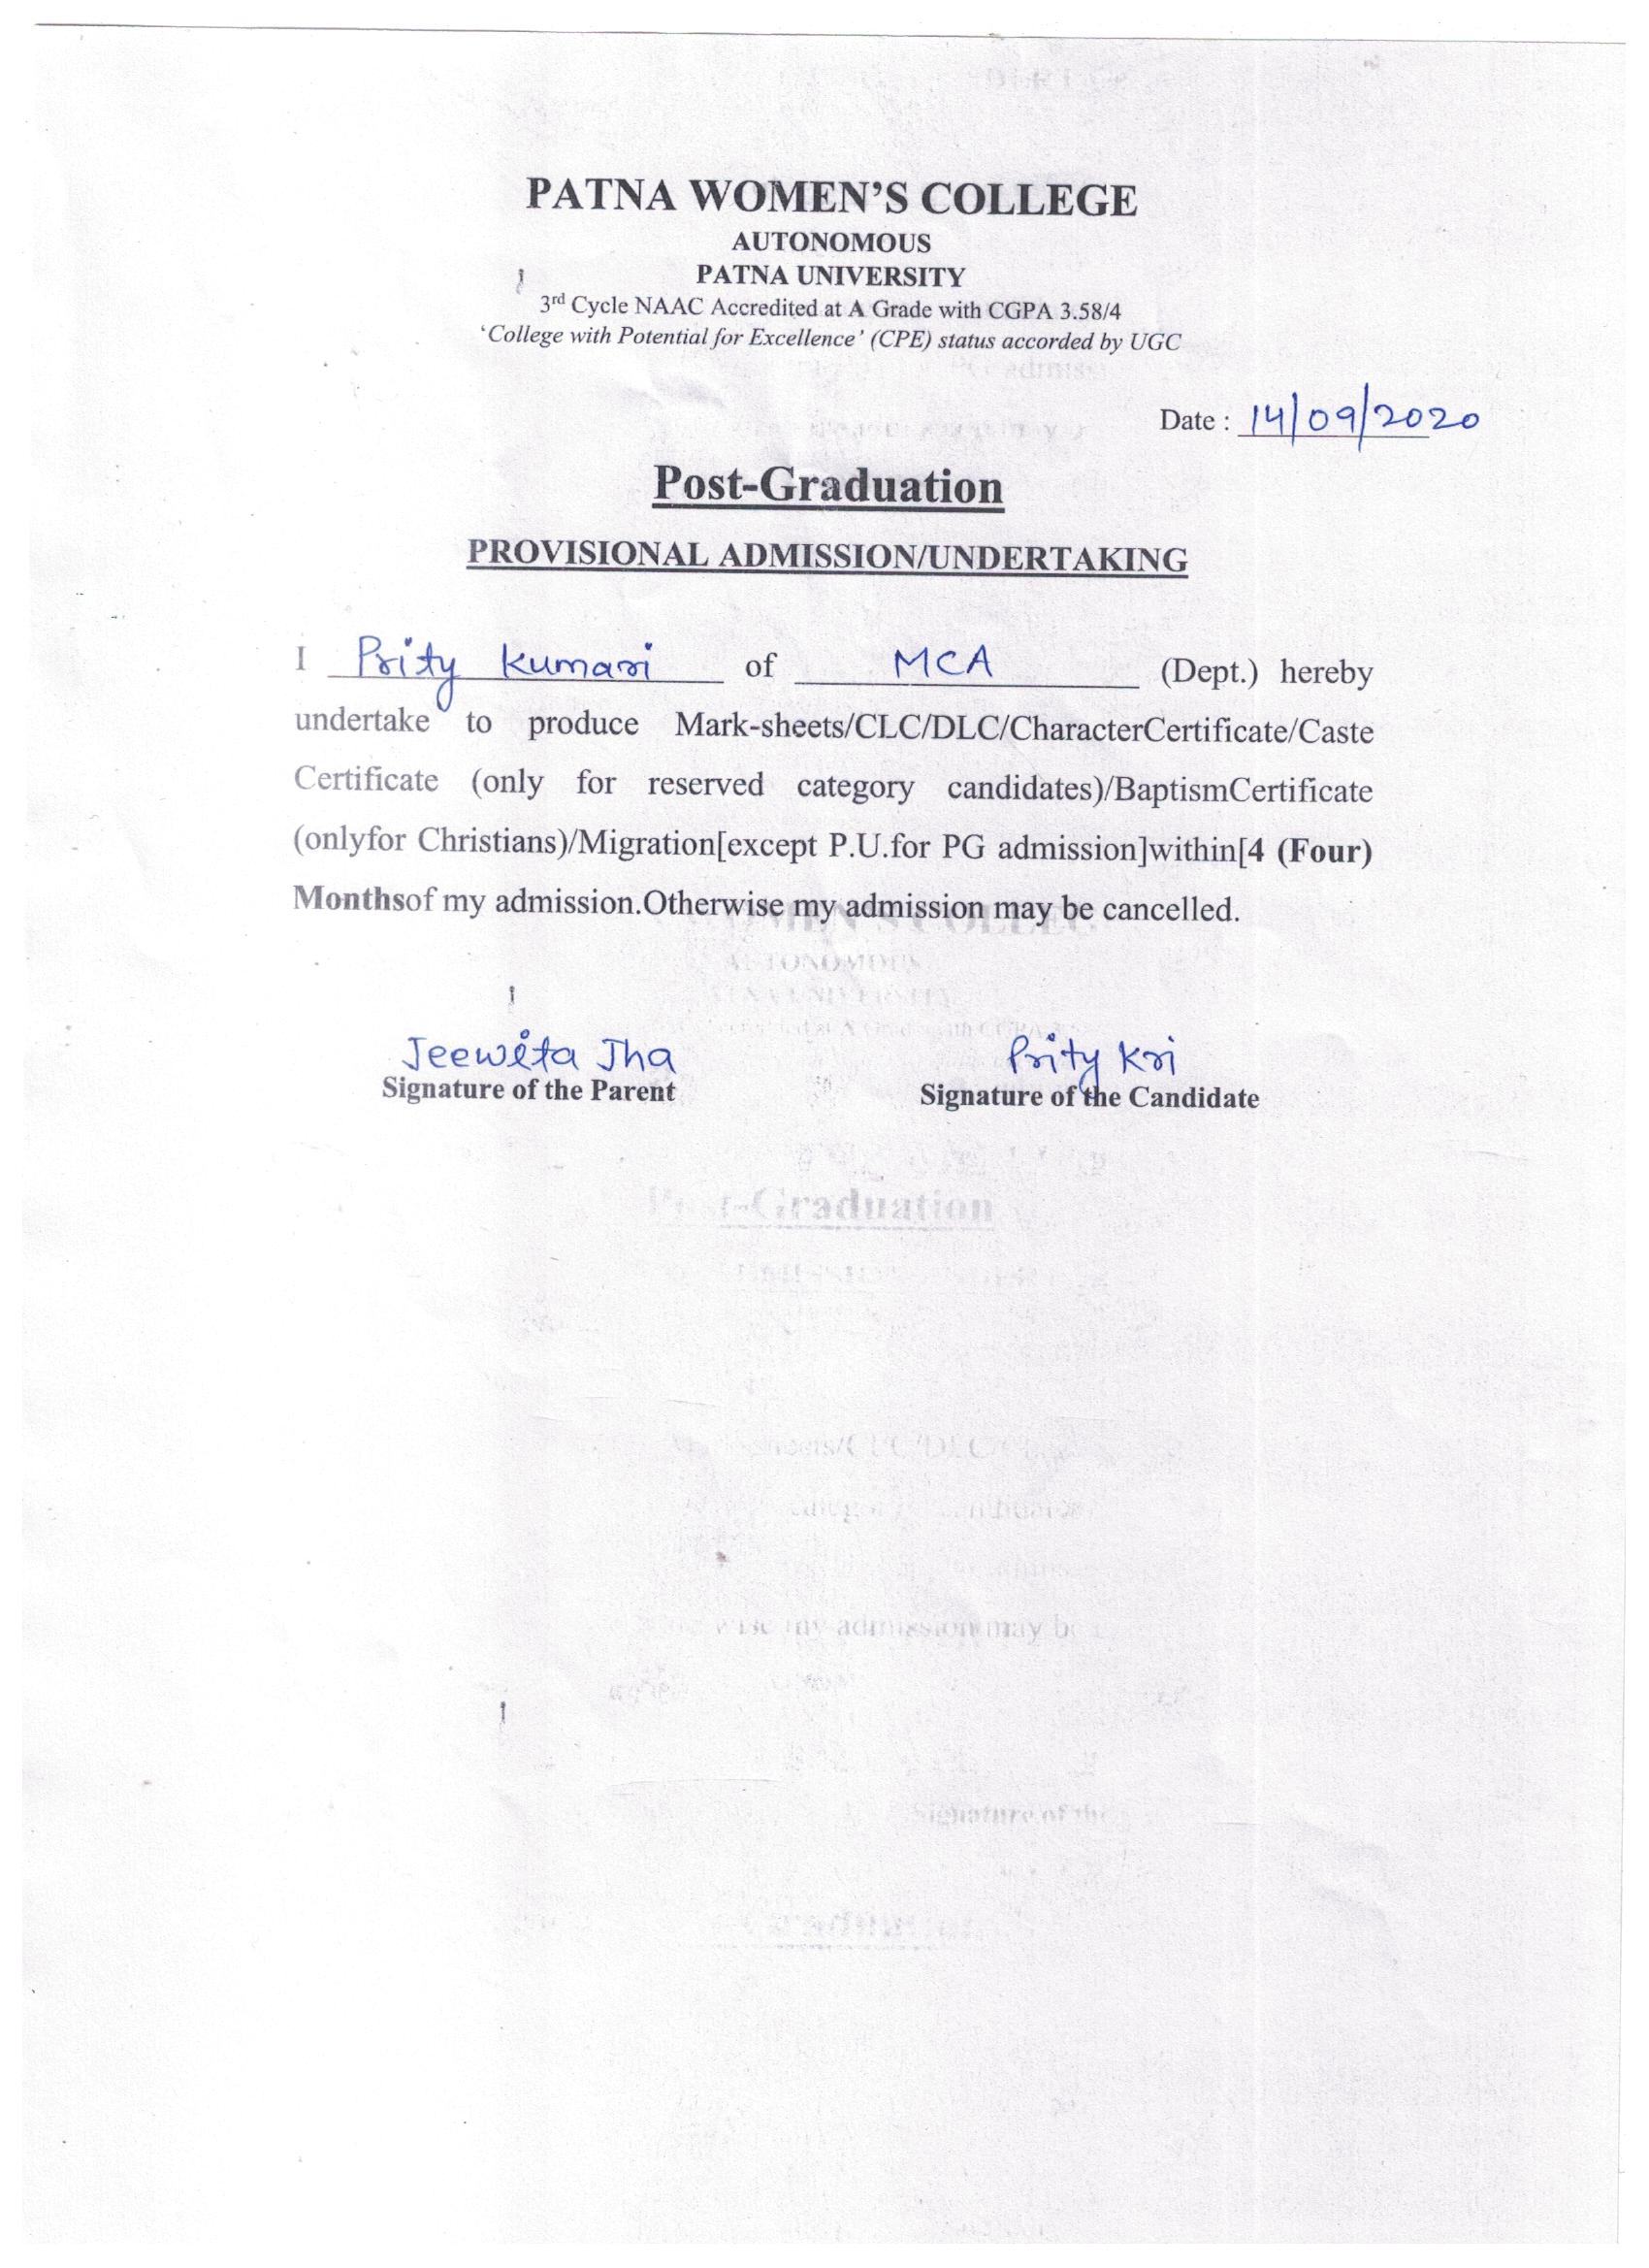 PATNA WOMEN'S COLLEGE
AUTONOMOUS
PATNA UNIVERSITY
3rd Cycle NAAC Accredited at A Grade with CGPA 3.58/4
'College with Potential for Excellence' (CPE) status accorded by UGC
Date : 14/09/2020
Post-Graduation
PROVISIONAL ADMISSION/UNDERTAKING
I Prity Kumari of MCA (Dept.) hereby
undertake to produce Mark-sheets/CLC/DLC/CharacterCertificate/Caste
Certificate (only for reserved category candidates)/BaptismCertificate
(onlyfor Christians)/Migration[except P.U.for PG admission]within[4 (Four)
Monthsof my admission.Otherwise my admission may be cancelled.
Jeeweta Jha Prity Kri
Signature of the Parent Signature of the Candidate